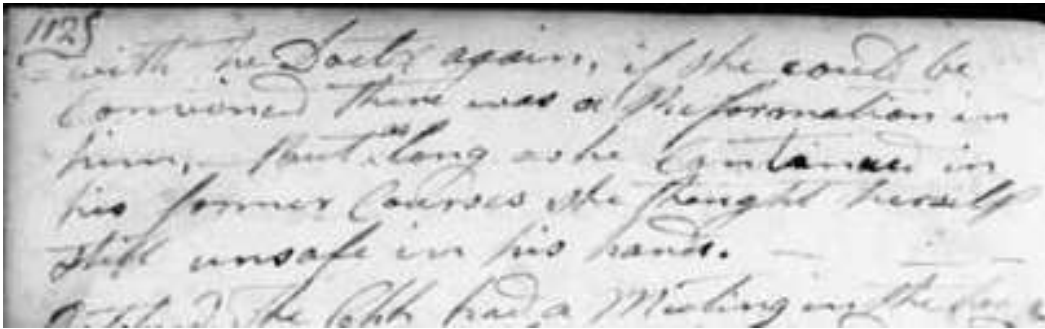 1125
with the Doctr again, if she could be
Convinced there was a Reformation in
him, — But as long as he Continued in
his former Courses she thought herself
still unsafe in his hands. —
the Chh had a Meeting in the